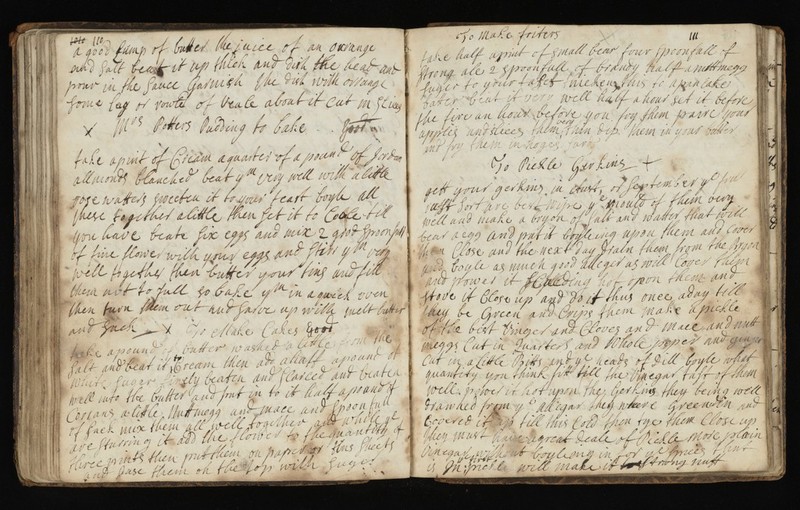 110
a good lump of butter the juice of an orrange
and salt beat it up thick and dish the head and
pour in the sauce Garnish the dish with orrange
some leg or of veale about it cut in slices
X Mrs Potters Pudding to bake
take a pint of Cream a quarter of a pound of Jordan
allmonds blanched beat ym very well with a little
rose watter sweeten it to your teast boyle all
these together a little then set it to Coole till
you have beate six eggs and mix 2 good spoonfulls
of fine flower with your eggs and stirr ym very
well together then butter your tins and fill
them not to full so bake ym in a quick oven
then turn them out and sarve up with melt butter
and suck X To Make Cakes good
take a pound of butter washed a little from the
salt and beat it to Cream then ad a pound of
white suger finely beaten and searced and beaten
well into the butter and put in to it half a pound of
a little Nuttmegg and mace and spoonfull
of sack mix them all well together and while ye
are sturring it ad the flower to the quantity of
three pints then put them on paper or tins sheets
and them on the tops with suger
To Make friters 111
take half a pint of small bear four spoonfull of
strong ale 2 spoonfull of brandy half a nuttmegg
suger to your taste thicken this to a pancake
batter beat it very well half a hour set it before
the fire an hour before you fry them paire your
apples and slices them very thin dip them in your batter
and fry them in hoges lard
To Pickle Gerkins X
gett your gerkins in August, or September ye
sort are best wipe ye mould of them very
well and make a bryon of salt and watter that will
bear a egg and put it boyleing upon them and Cover
them Close and the next day drain them from the bryon
and boyle as much good alleger as will Cover them
and power it scalding hot upon them and
stove it Close up and do it thus once a day till
they be Green and Crips them make a pickle
of the best vinegar and Cloves and Mace and nutt
meggs Cut in Quarters and Whole pepper and ginger
Cut in a little Bitts and ye heads of Dill boyle what
quantity you think fitt till the Vinegar tast of them
well power it hot upon the Gerkins they being well
drained from ye allegar then have Green Dill and
Covered it up till this Cold then tye them Close up
they must have a great deale of Pickle more plain
Vinegar without boyleing in for ye spices
is in first will make it strong nuff